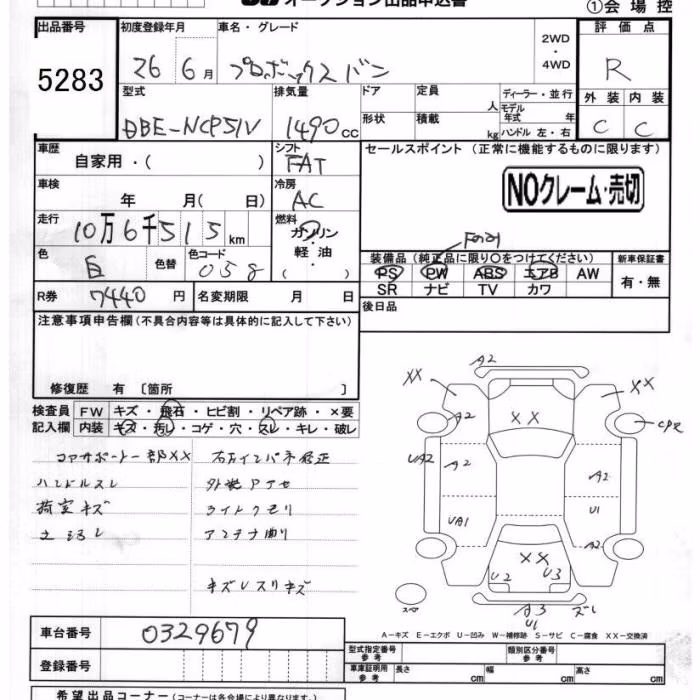 オークション出品申込書
①会場控
出品番号 初度登録年月 車名・グレード 評価点
5283 26 6月 プロボックスバン 2WD・4WD R
型式 排気量 ドア 定員 人 ディーラー・並行 外装 内装
DBE-NCP51V 1490cc 形状 積載 kg モデル年式 年 ハンドル 左・右 C C
車歴 シフト セールスポイント (正常に機能するものに限ります)
自家用・( ) FAT
NOクレーム・売切
車検 冷房
年 月( 日) AC
走行 燃料
10万6千515km ガソリン・軽油・( )
色 色替 色コード 装備品 (純正品に限り○をつけてください) 新車保証書
白 058 PS PW ABS エアB AW 有・無
SR ナビ TV カワ
R券 7440円 名変期限 月 日 後日品
注意事項申告欄 (不具合内容等は具体的に記入して下さい)
修復歴 有 [箇所 ]
検査員 FW キズ・飛石・ヒビ割・リペア跡・×要
記入欄 内装 キズ・汚れ・コゲ・穴・スレ・キレ・破レ
コアサポート一部XX
ハンドルスレ
荷室キズ
外装アアセ
ライトクモリ
アンテナ曲り
キズレスリキズ
A2
XX XX
A2 XX
UA2 A2 A2
UA1 U1
XX A2
U2 U3
スペア A3 ズレ
U1
車台番号 0329679
登録番号
A-キズ E-エクボ U-凹み W-補修跡 S-サビ C-腐食 XX-交換済
型式指定番号 参考 類別区分番号 参考
車庫証明用 参考 長さ cm 幅 cm 高さ cm
希望出品コーナー (コーナーは各会場により異なります)